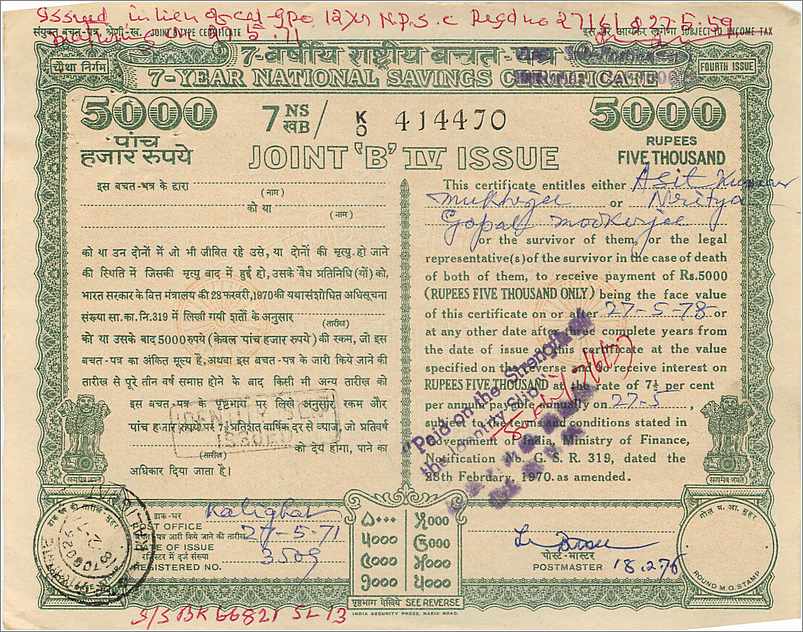 Issued in lieu of Cal-GPO 12 yr N.P.S.C Regd no 27161 & 27-5-59
संयुक्त बचत-पत्र, श्रेणी-ख. JOINT B TYPE CERTIFICATE
इस पर आयकर लगेगा SUBJECT TO INCOME TAX
7-वर्षीय राष्ट्रीय बचत-पत्र
चौथा निर्गम
7-YEAR NATIONAL SAVINGS CERTIFICATE
FOURTH ISSUE
5000
7 NS
खB / K
O 414470
5000
पांच
हजार रुपये
RUPEES
FIVE THOUSAND
JOINT 'B' IV ISSUE
इस बचत-पत्र के द्वारा
(नाम)
को या
(नाम)
को या उन दोनों में जो भी जीवित रहे उसे, या दोनों की मृत्यु हो जाने
की स्थिति में जिसकी मृत्यु बाद में हुई हो, उसके वैध प्रतिनिधि (यों) को,
भारत सरकार के वित्त मंत्रालय की 28 फरवरी, 1970 की यथासंशोधित अधिसूचना
संख्या सा. का. नि. 319 में लिखी गयी शर्तों के अनुसार
(तारीख)
को या उसके बाद 5000 रुपये (केवल पांच हजार रुपये) की रकम, जो इस
बचत-पत्र का अंकित मूल्य है, अथवा इस बचत-पत्र के जारी किये जाने की
तारीख से पूरे तीन वर्ष समाप्त होने के बाद किसी भी अन्य तारीख को
इस बचत-पत्र के पृष्ठभाग पर लिखे अनुसार रकम और
पांच हजार रुपये पर 7½ प्रतिशत वार्षिक दर से ब्याज, जो प्रतिवर्ष
(तारीख) को देय होगा, पाने का
अधिकार दिया जाता है।
IDENTITY SLIP
ISSUED
This certificate entitles either Asit Kumar
Mukherjee or Nritya
Gopal Mookerjee
or the survivor of them, or the legal
representative(s) of the survivor in the case of death
of both of them, to receive payment of Rs.5000
(RUPEES FIVE THOUSAND ONLY) being the face value
of this certificate on or after 27-5-78 or
at any other date after three complete years from
the date of issue of this certificate at the value
specified on the reverse and to receive interest on
RUPEES FIVE THOUSAND at the rate of 7½ per cent
per annum payable annually on 27-5,
subject to the terms and conditions stated in
Government of India, Ministry of Finance,
Notification No. G. S. R. 319, dated the
28th February, 1970. as amended.
Paid on the Strength of
the Identity Slip
सत्यमेव जयते
सत्यमेव जयते
डाक-घर Kalighat
POST OFFICE
पत्र जारी किये जाने की तारीख 27-5-71
DATE OF ISSUE
रजिस्टर में दर्ज संख्या 3509
REGISTERED NO.
पोस्ट-मास्टर
POSTMASTER 18.2.76
गोल म. आ. मुहर
ROUND M.O. STAMP
पृष्ठभाग देखिये SEE REVERSE
INDIA SECURITY PRESS, NASIK ROAD.
S/S BK 66821 SL 13